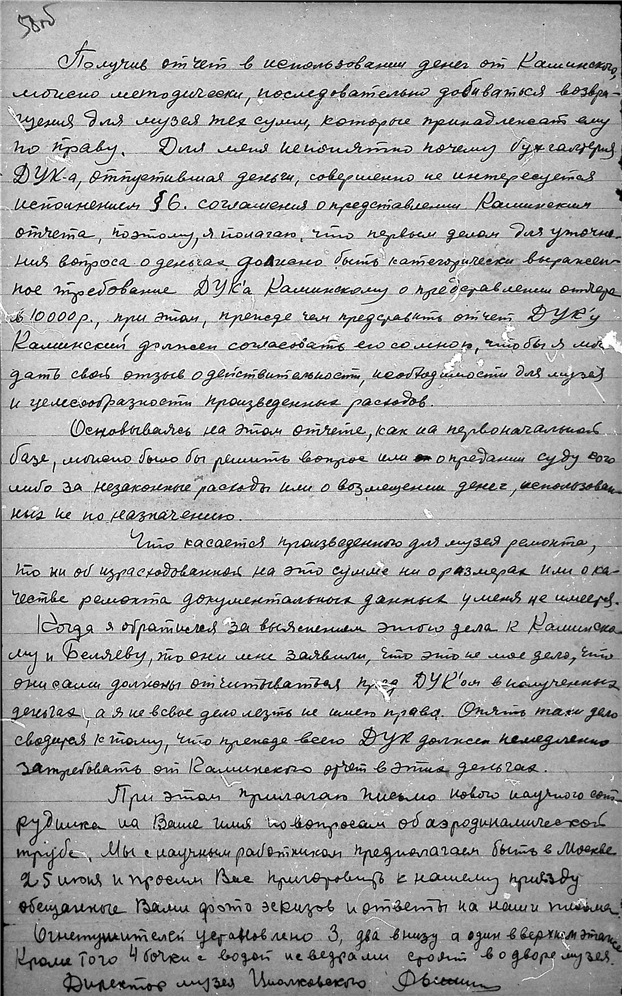 58об
Получив отчет в использовании денег от Каминского,
можно методически, последовательно добиваться возвра-
щения для музея тех сумм, которые принадлежат ему
по праву. Для меня непонятно почему бухгалтерия
ДУК-а, отпустившая деньги, совершенно не интересуется
исполнением §6. соглашения о представлении Каминским
отчета, поэтому, я полагаю, что первым делом для уточне-
ния вопроса о деньгах должно быть категорически выражен-
ное требование ДУК'а Каминскому о представлении отчета
в 10000 р., при этом, прежде чем представить отчет ДУК'у
Каминский должен согласовать его со мною, чтобы я мог
дать свой отзыв о действительности, необходимости для музея
и целесообразности произведенных расходов.
Основываясь на этом отчете, как на первоначальной
базе, можно было бы решить вопрос или о предании суду кого
либо за незаконные расходы или о возмещении денег, использован-
ных не по назначению.
Что касается произведенного для музея ремонта,
то ни об израсходованной на это сумме ни о размерах или о ка-
честве ремонта документальных данных у меня не имеется.
Когда я обратился за выяснением этого дела к Каминско-
му и Беляеву, то они мне заявили, что это не мое дело, что
они сами должны отчитываться пред ДУК'ом в полученных
деньгах, а я не в свое дело лезть не имею права. Опять таки дело
сводится к тому, что прежде всего ДУК должен немедленно
затребовать от Каминского отчет в этих деньгах.
При этом прилагаю письмо нового научного сот-
рудника на Ваше имя по вопросам об аэродинамической
трубе. Мы с научным работником предполагаем быть в Москве
25 июня и просим Вас приготовить к нашему приезду
обещанные Вами фото эскизов и ответы на наши письма.
Огнетушителей установлено 3, два внизу а один в верхнем этаже
Кроме того 4 бочки с водой и с ведрами стоят во дворе музея.
Директор музея Циолковского